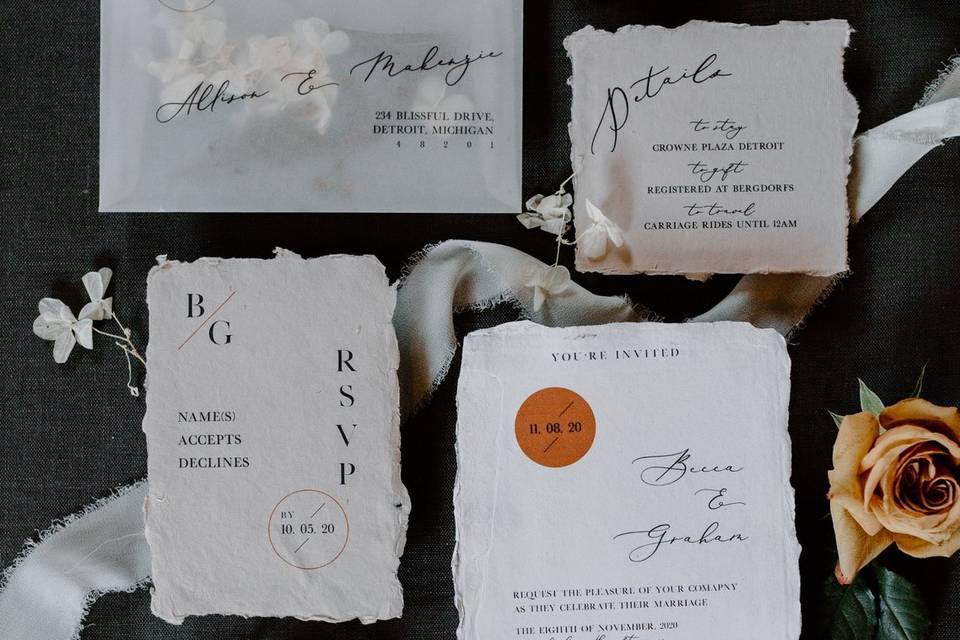 Allison & Makenzie
234 BLISSFUL DRIVE,
DETROIT, MICHIGAN
4 8 2 0 1
Details
to stay
CROWNE PLAZA DETROIT
to gift
REGISTERED AT BERGDORFS
to travel
CARRIAGE RIDES UNTIL 12AM
B
G
RSVP
NAME(S)
ACCEPTS
DECLINES
BY
10. 05. 20
YOU'RE INVITED
11. 08. 20
Becca
&
Graham
REQUEST THE PLEASURE OF YOUR COMAPNY
AS THEY CELEBRATE THEIR MARRIAGE
THE EIGHTH OF NOVEMBER, 2020